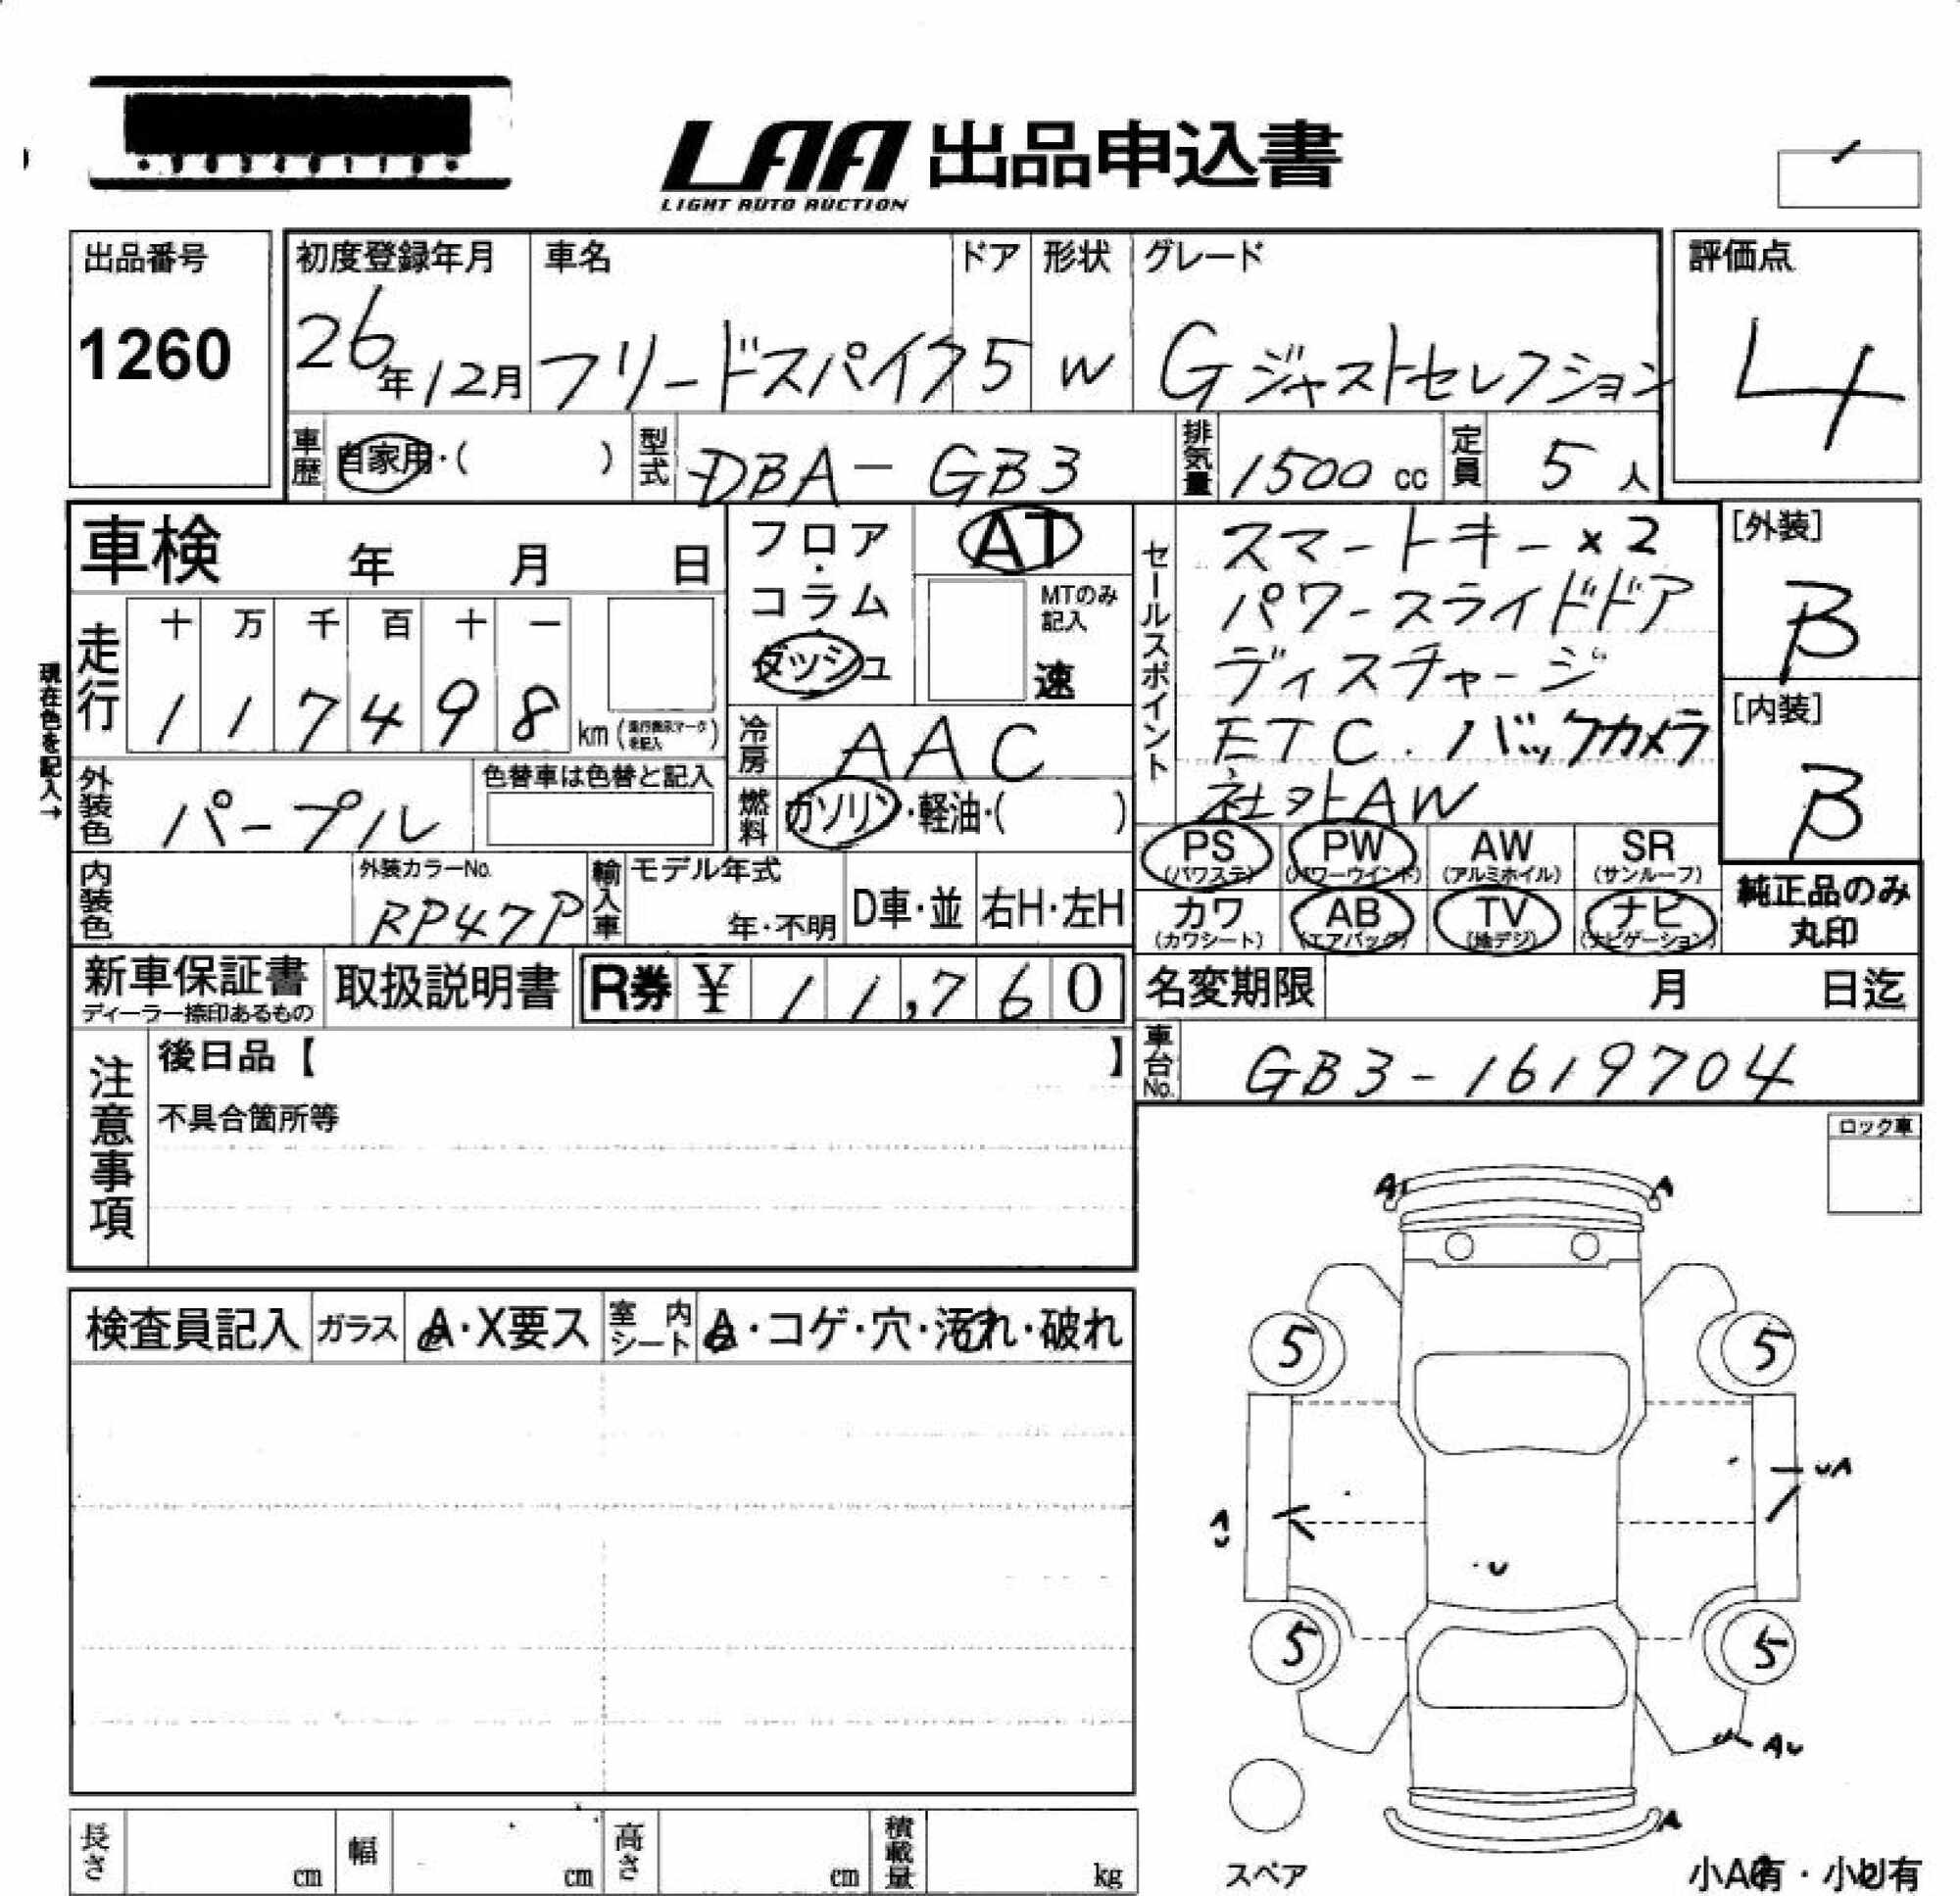 LAA 出品申込書
LIGHT AUTO AUCTION
出品番号
1260
初度登録年月
26年12月
車名
フリードスパイク
ドア
5
形状
W
グレード
Gジャストセレクション
評価点
4
車歴
自家用・( )
型式
DBA-GB3
排気量
1500 cc
定員
5 人
車検 年 月 日
現在色を記入→
走行
十 万 千 百 十 一
1 1 7 4 9 8
km(走行表示マークを記入)
フロア・コラム・ダッシュ
AT
MTのみ記入
速
セールスポイント
スマートキー×2
パワースライドドア
ディスチャージ
ETC. バックカメラ
社外AW
[外装]
B
[内装]
B
冷房
AAC
燃料
ガソリン・軽油・( )
外装色
パープル
色替車は色替と記入
内装色
外装カラーNo.
RP47P
輸入車
モデル年式
年・不明
D車・並
右H・左H
PS (パワステ)
PW (パワーウインド)
AW (アルミホイル)
SR (サンルーフ)
カワ (カワシート)
AB (エアバッグ)
TV (地デジ)
ナビ (ナビゲーション)
純正品のみ
丸印
新車保証書
ディーラー捺印あるもの
取扱説明書
R券 ¥ 11,760
名変期限 月 日迄
車台No.
GB3-1619704
注意事項
後日品【 】
不具合箇所等
ロック車
検査員記入
ガラス
A・X要ス
室内シート
A・コゲ・穴・汚れ・破れ
A A
5 5
UA
A
U
U
5 5
AU
A
スペア
小A有・小U有
長さ cm
幅 cm
高さ cm
積載量 kg